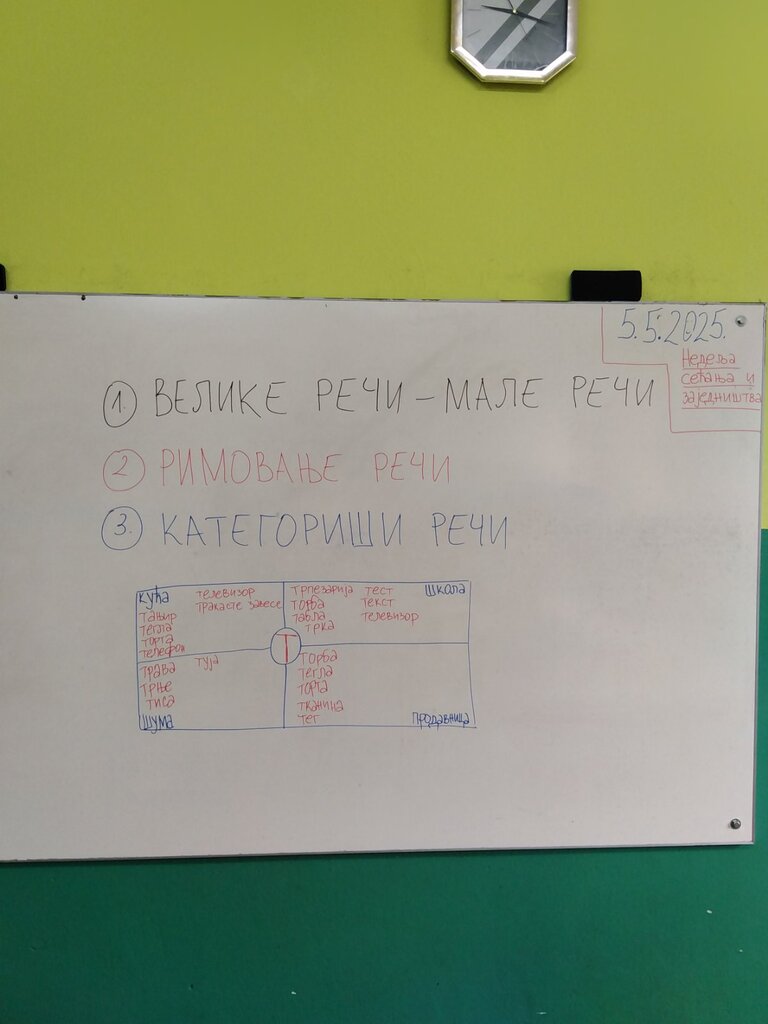 5.5.2025.
Недеља
сећања и
заједништва
1. ВЕЛИКЕ РЕЧИ – МАЛЕ РЕЧИ
2. РИМОВАЊЕ РЕЧИ
3. КАТЕГОРИШИ РЕЧИ
кућа
тањир
тегла
торта
телефон
телевизор
тракасте завесе
трпезарија
торба
табла
трка
тест
текст
телевизор
школа
Т
трава
трње
тиса
туја
шума
торба
тегла
торта
тканина
тег
продавница